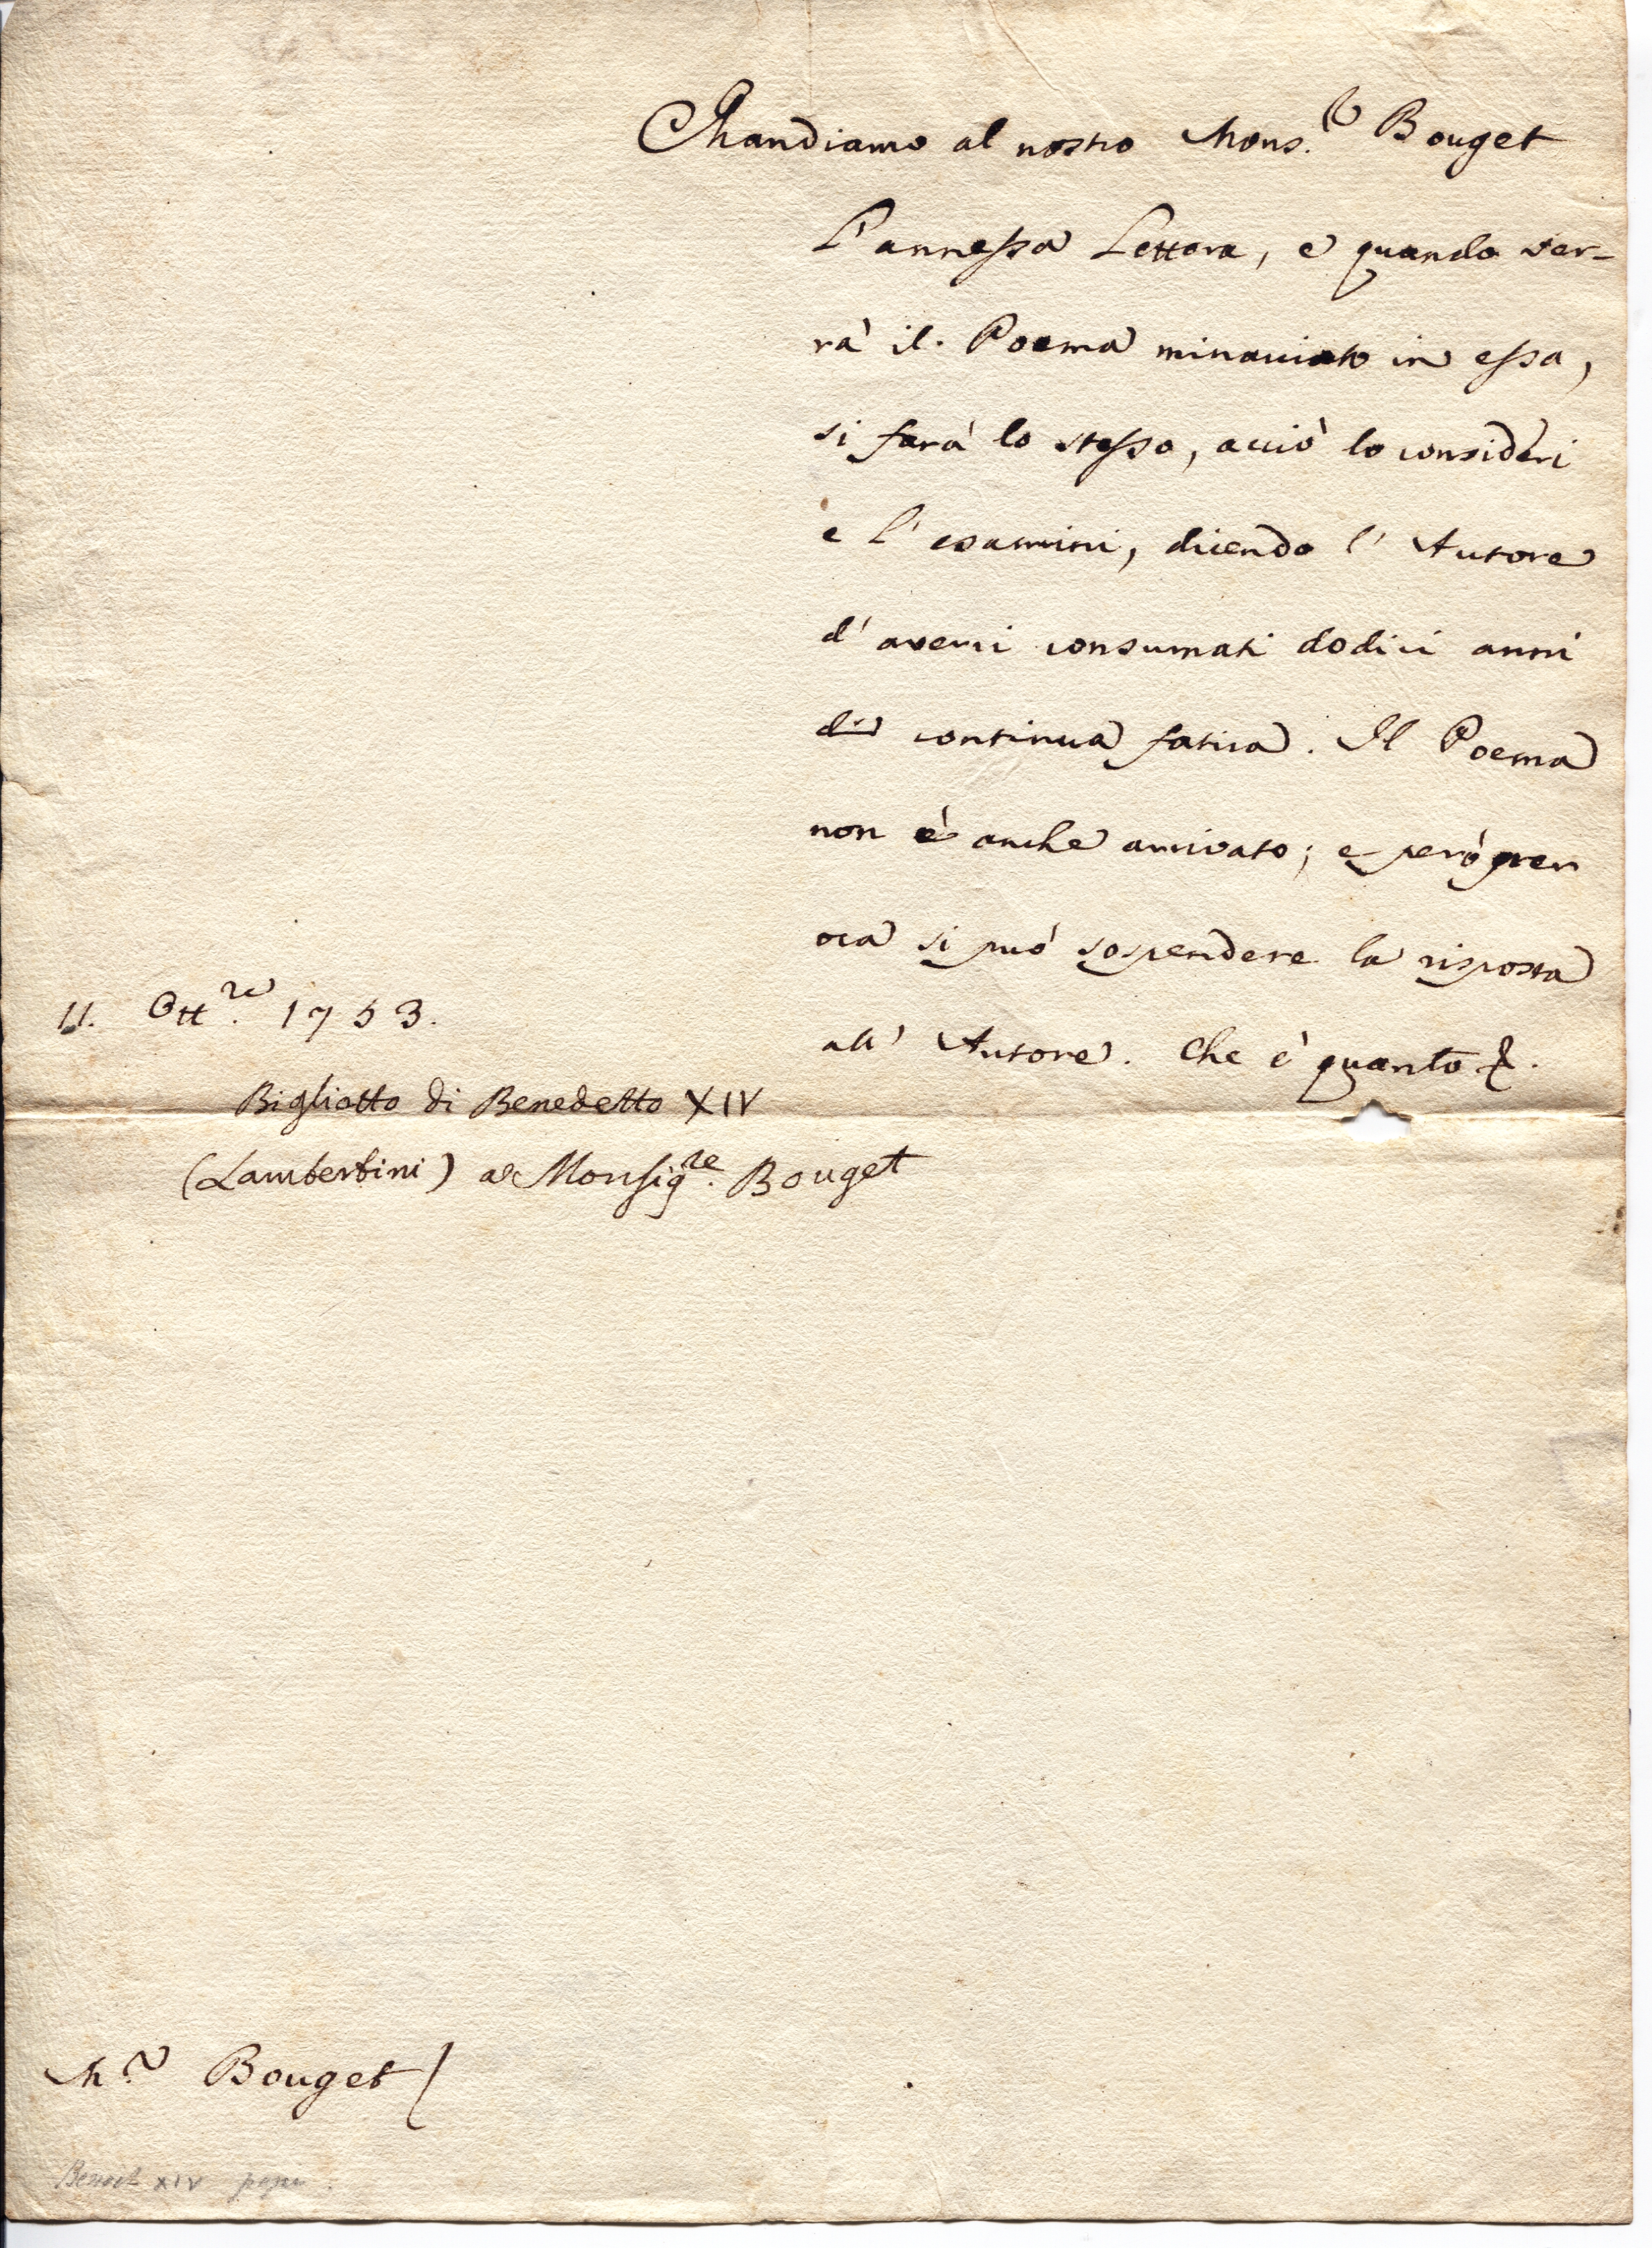 Mandiamo al nostro Mons.r Bouget
l'annessa Lettera, e quando ver-
rà il Poema minacciato in essa,
si farà lo stesso, acciò lo consideri
e l'esamini, dicendo l'Autore
d'averci consumati dodici anni
di continua fatica. Il Poema
non è anche arrivato; e però per
ora si può sospendere la risposta
all'Autore. Che è quanto
11. Ott.re 1753.
Biglietto di Benedetto XIV
(Lambertini) a Monsig.re Bouget
M.r Bouget
Benoit XIV pape